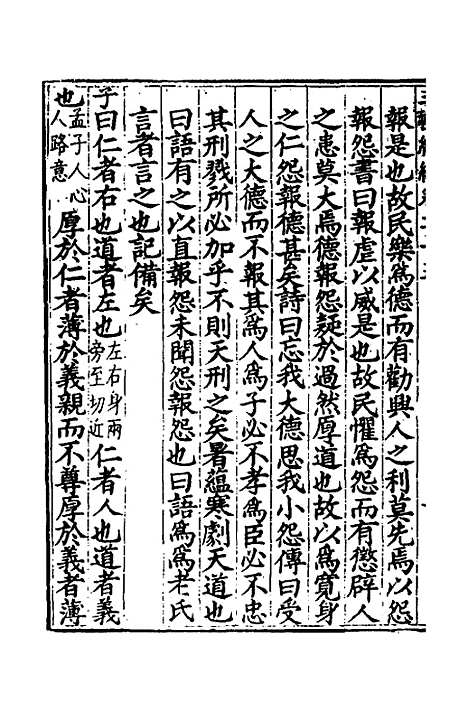 報是也故民樂為德而有勸興人之利莫先焉以怨
報怨書曰報虐以威是也故民懼為怨而有懲辟人
之患莫大焉德報怨疑於過然厚道也故以為寬身
之仁怨報德甚矣詩曰忘我大德思我小怨傳曰受
人之大德而不報其為人為子必不孝為臣必不忠
其刑戮所必加乎不則天刑之矣暑蘊寒劇天道也
曰語有之以直報怨未聞怨報怨也曰語為為老氏
言者言之也記備矣
子曰仁者右也道者左也左右身兩旁至切近仁者人也道者義
也孟子人心人路意厚於仁者薄於義親而不尊厚於義者薄